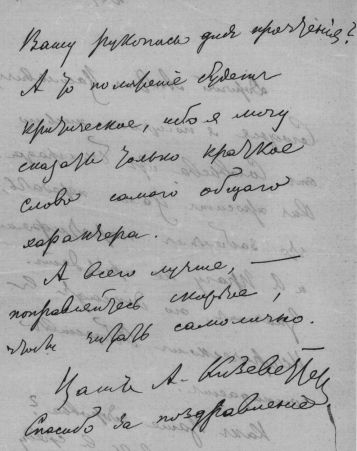 Вашу рукопись для прочтенія?
А то положеніе будетъ
критическое, ибо я могу
сказать только краткое
слово самого общаго
характера.
А всего лучше, —
поправляйтесь скорѣе,
чтобы читать самолично.
Вашъ А. Кизеветтер
Спасибо за поздравленіе.